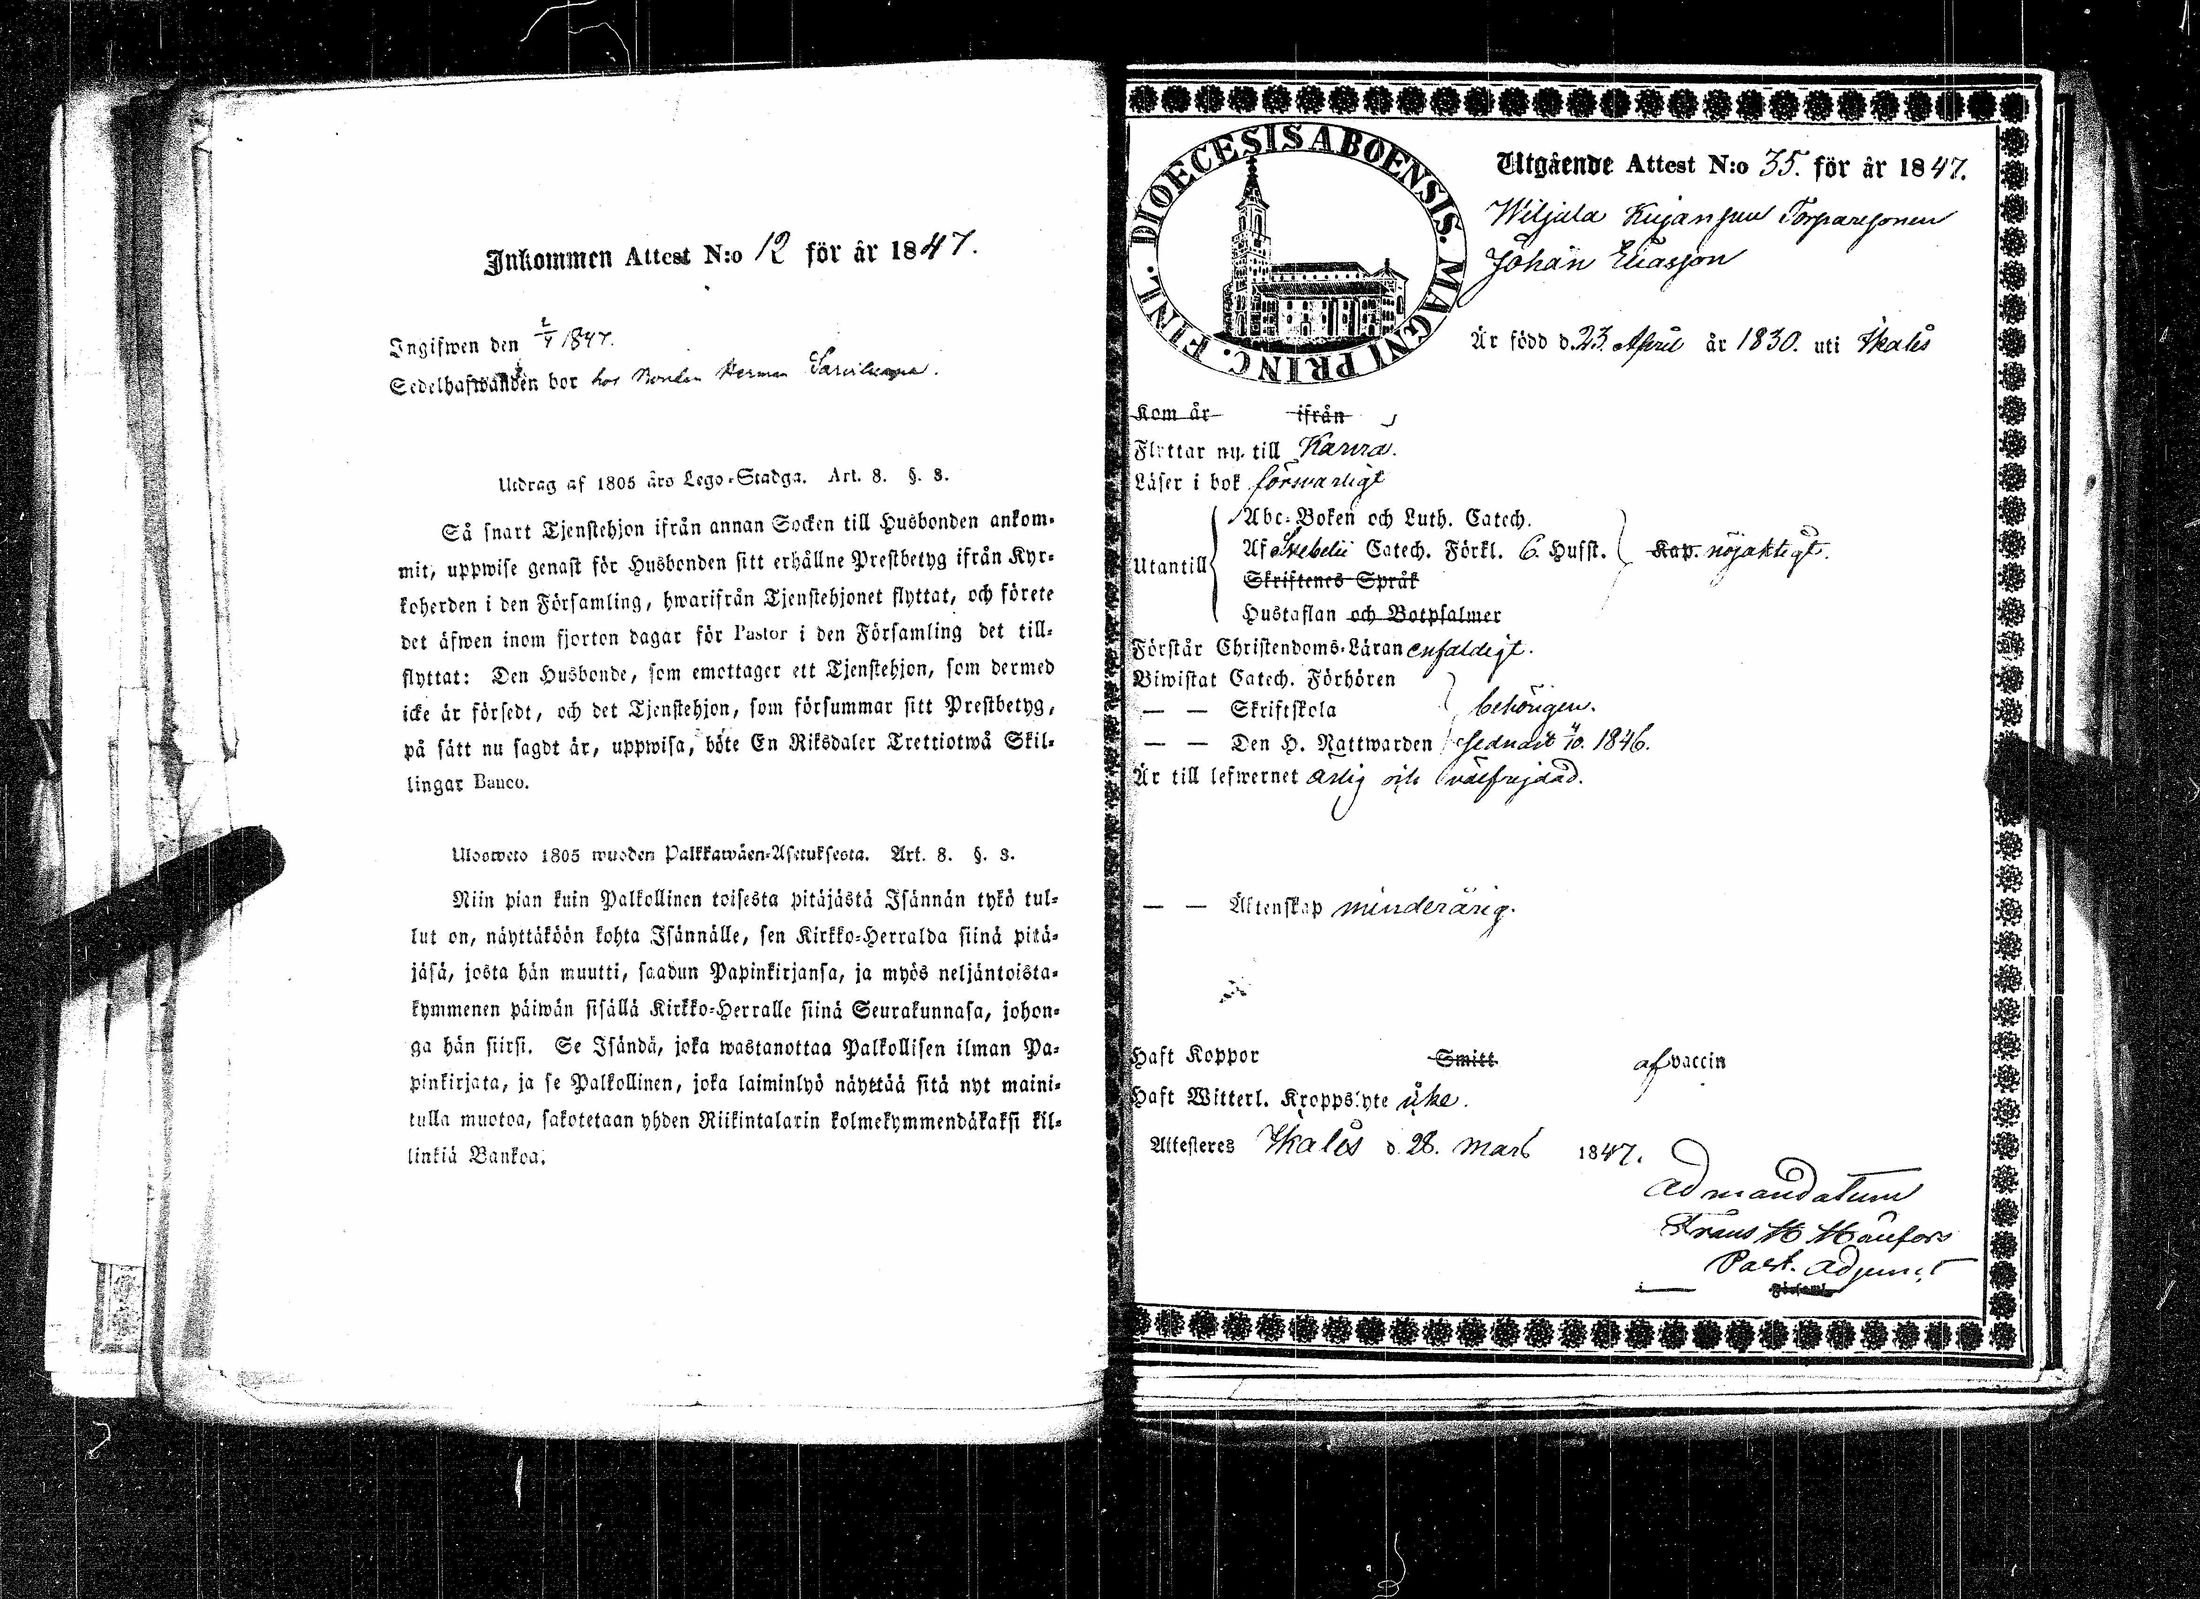 Inkommen Attest N:o 12 för år 1847.
Ingifwen den 2/4 1847.
Sedelhafwanden bor hos Bonden Herman
Utdrag af 1805 års Lego-Stadga. Art. 8. §. 8.
Så snart Tjenstehjon ifrån annan Socken till Husbonden ankom-
mit, uppwise genast för Husbonden sitt erhållne Prestbetyg ifrån Kyr-
koherden i den Församling, hwarifrån Tjenstehjonet flyttat, och förete
det äfwen inom fjorton dagar för Pastor i den Församling det till-
flyttat: Den Husbonde, som emottager ett Tjenstehjon, som dermed
icke är försedt, och det Tjenstehjon, som försummar sitt Prestbetyg,
på sätt nu sagdt är, uppwisa, böte En Riksdaler Trettiotwå Skil-
lingar Banco.
Ulosweto 1805 wuoden Palkkawäen-Asetuksesta. Art. 8. §. 8.
Niin pian kuin Palkollinen toisesta pitäjästä Isännän tykö tul-
lut on, näyttäköön kohta Isännälle, sen Kirkko-Herralda siinä pitä-
jäsä, josta hän muutti, saadun Papinkirjansa, ja myös neljäntoista-
kymmenen päiwän sisällä Kirkko-Herralle siinä Seurakunnasa, johon-
ga hän siirsi. Se Isändä, joka wastanottaa Palkollisen ilman Pa-
pinkirjata, ja se Palkollinen, joka laiminlyö näyttää sitä nyt maini-
tulla muotoa, sakotetaan yhden Riikintalarin kolmekymmendäkaksi kil-
linkiä Bankoa.
DIOECESIS ABOENSIS. MAGNI PRINC. FINL.
Utgående Attest N:o 35. för år 1847.
Wiljala Torparesonen
Johan Eliasson
Är född d. 23. April år 1830. uti Ikalis
Kom år ifrån
Flyttar nu till Karvia.
Läser i bok försvarligt
Abc-Boken och Luth. Catech.
Utantill Af Svebelii Catech. Förkl. 6. Hufst. Kap. nöjaktigt.
Skriftenes Språk
Hustaflan och Botpsalmer
Förstår Christendoms-Läran enfaldigt.
Biwistat Catech. Förhören
— — Skriftskola behörigen.
— — Den H. Nattwarden sednast 4/10. 1846.
Är till lefwernet ärlig och välfrejdad.
— — Äktenskap minderårig.
Haft Koppor Smitt af vaccin
Haft Witterl. Kroppslyte icke.
Attesteres Ikalis d. 28. Mars 1847.
Ad mandatum
Frans H
Past. Adjunct
i Församl.